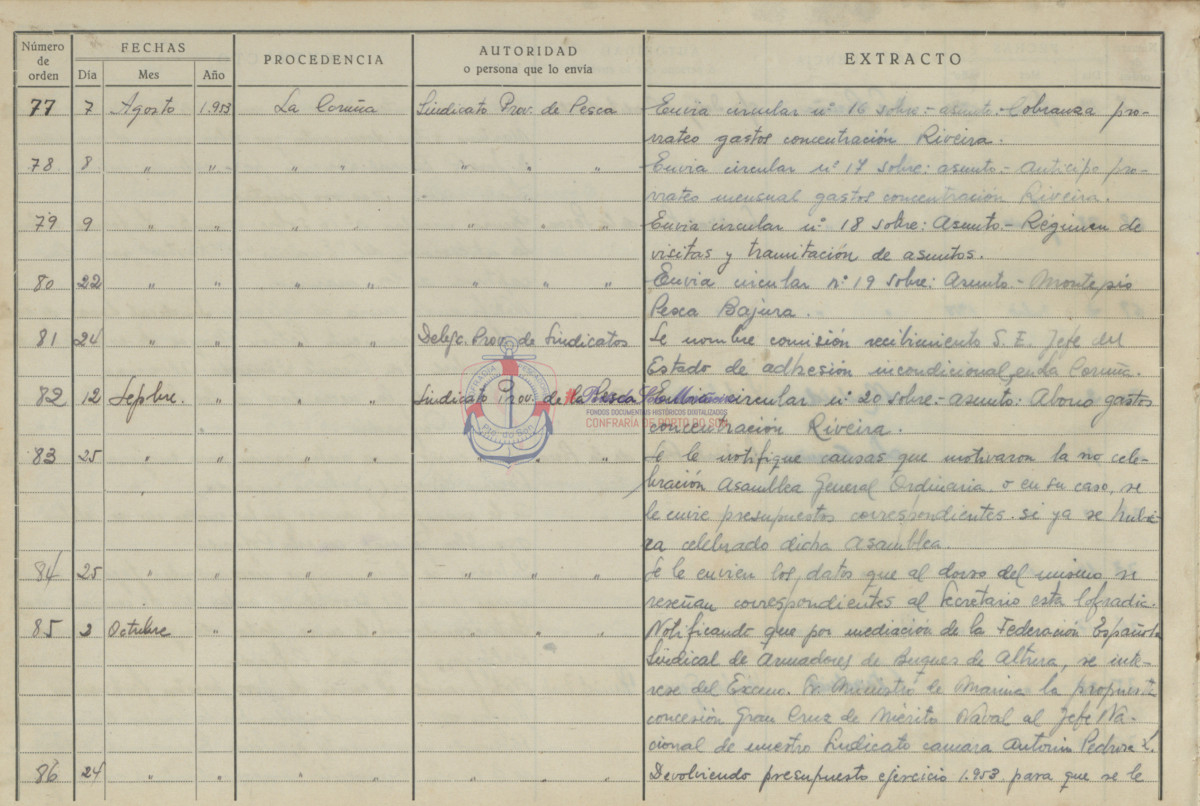 Número de orden FECHAS PROCEDENCIA AUTORIDAD o persona que lo envía EXTRACTO
Día Mes Año
77 7 Agosto 1.953 La Coruña Sindicato Prov. de Pesca Envia circular nº 16 sobre.- asunto.- Cobranza pro-
rrateo gastos concentración Riveira.
78 8 " " " " " " " Envia circular nº 17 sobre: asunto.- Anticipo pro-
rrateo mensual gastos concentración Riveira.
79 9 " " " " " " " Envia circular nº 18 sobre: Asunto.- Régimen de
visitas y tramitación de asuntos.
80 22 " " " " " " " Envia circular nº 19 sobre: Asunto.- Montepio
Pesca Bajura.
81 24 " " " " Delegc. Prov. de Sindicatos Se nombre comisión recibimiento S. E. Jefe del
Estado de adhesion incondicional, en La Coruña.
82 12 Sepbre. " " " Sindicato Prov. de la Pesca Envia circular nº 20 sobre.- asunto: Abono gastos
concentración Riveira.
83 25 " " " " " " " Se le notifique causas que motivaron la no cele-
bración Asamblea General Ordinaria o en su caso, se
le envie presupuestos correspondientes si ya se hubie-
ra celebrado dicha Asamblea.
84 25 " " " " " " " Se le envien los datos que al dorso del mismo se
reseñan correspondientes al Secretario esta Cofradia.
85 2 Octubre " " " " " " Notificando que por mediación de la Federación Española
Sindical de Armadores de Buques de Altura, se inte-
rese del Excmo. Sr. Ministro de Marina la propuesta
concesión Gran Cruz de Mérito Naval al Jefe Na-
cional de nuestro Sindicato camara Antonio
86 24 " " " " " " " Devolviendo presupuesto ejercicio 1.953 para que se le
COFRADIA PESCADORES
Pto. do Son
FONDOS DOCUMENTAIS HISTÓRICOS DIGITALIZADOS
CONFRARÍA DE PORTO DO SON